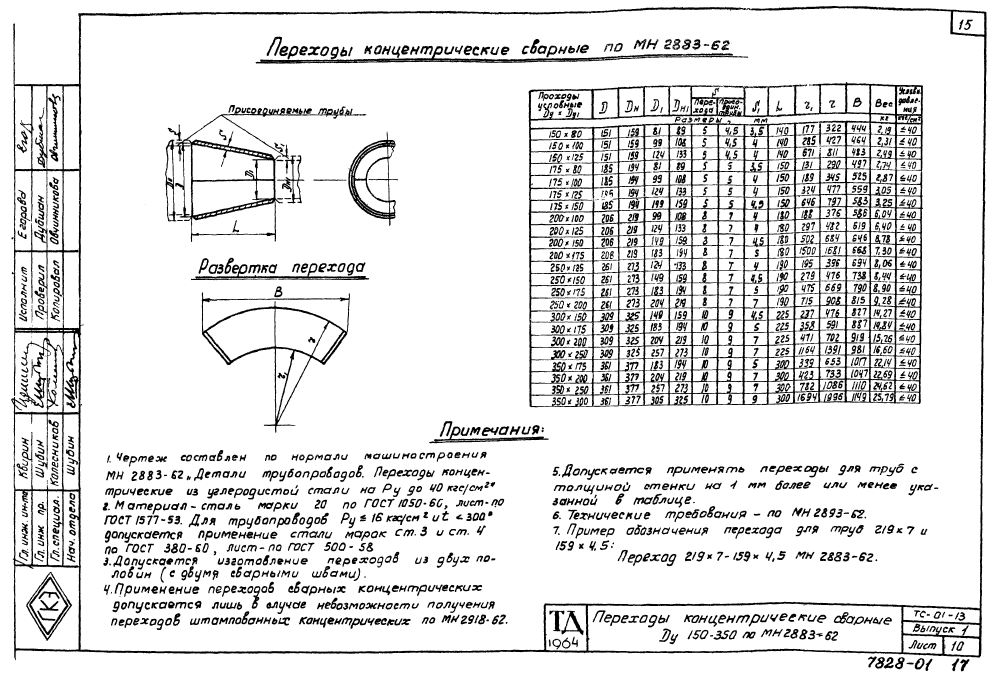 15
Переходы концентрические сварные по МН 2883-62
Присоединяемые трубы
S
D
D1
L
Развертка перехода
B
Проходы условные Dу × Dу1 | D | Dн | D1 | Dн1 | S перехода | S присоедин. трубы | S1 | L | r1 | r | B | Вес | Условн. давления
Размеры, мм | кг | кгс/см²
150 × 80 | 151 | 159 | 81 | 89 | 5 | 4,5 | 3,5 | 140 | 177 | 322 | 444 | 2,19 | ≤40
150 × 100 | 151 | 159 | 99 | 108 | 5 | 4,5 | 4 | 140 | 285 | 427 | 464 | 2,31 | ≤40
150 × 125 | 151 | 159 | 124 | 133 | 5 | 4,5 | 4 | 140 | 671 | 811 | 483 | 2,49 | ≤40
175 × 80 | 185 | 194 | 81 | 89 | 5 | 5 | 3,5 | 150 | 131 | 290 | 497 | 2,74 | ≤40
175 × 100 | 185 | 194 | 99 | 108 | 5 | 5 | 4 | 150 | 189 | 345 | 525 | 2,87 | ≤40
175 × 125 | 185 | 194 | 124 | 133 | 5 | 5 | 4 | 150 | 324 | 477 | 559 | 3,05 | ≤40
175 × 150 | 185 | 194 | 149 | 159 | 5 | 5 | 4,5 | 150 | 646 | 797 | 583 | 3,25 | ≤40
200 × 100 | 206 | 219 | 99 | 108 | 8 | 7 | 4 | 180 | 188 | 376 | 586 | 6,04 | ≤40
200 × 125 | 206 | 219 | 124 | 133 | 8 | 7 | 4 | 180 | 297 | 482 | 619 | 6,40 | ≤40
200 × 150 | 206 | 219 | 149 | 159 | 8 | 7 | 4,5 | 180 | 502 | 684 | 646 | 6,78 | ≤40
200 × 175 | 206 | 219 | 183 | 194 | 8 | 7 | 5 | 180 | 1500 | 1681 | 668 | 7,30 | ≤40
250 × 125 | 261 | 273 | 124 | 133 | 8 | 7 | 4 | 190 | 195 | 396 | 694 | 8,06 | ≤40
250 × 150 | 261 | 273 | 149 | 159 | 8 | 7 | 4,5 | 190 | 279 | 476 | 738 | 8,44 | ≤40
250 × 175 | 261 | 273 | 183 | 194 | 8 | 7 | 5 | 190 | 475 | 669 | 790 | 8,90 | ≤40
250 × 200 | 261 | 273 | 204 | 219 | 8 | 7 | 7 | 190 | 715 | 908 | 815 | 9,28 | ≤40
300 × 150 | 309 | 325 | 149 | 159 | 10 | 9 | 4,5 | 225 | 237 | 476 | 827 | 14,27 | ≤40
300 × 175 | 309 | 325 | 183 | 194 | 10 | 9 | 5 | 225 | 358 | 591 | 887 | 14,84 | ≤40
300 × 200 | 309 | 325 | 204 | 219 | 10 | 9 | 7 | 225 | 471 | 702 | 919 | 15,26 | ≤40
300 × 250 | 309 | 325 | 257 | 273 | 10 | 9 | 7 | 225 | 1164 | 1391 | 981 | 16,60 | ≤40
350 × 175 | 361 | 377 | 183 | 194 | 10 | 9 | 5 | 300 | 339 | 653 | 1017 | 22,14 | ≤40
350 × 200 | 361 | 377 | 204 | 219 | 10 | 9 | 7 | 300 | 423 | 733 | 1047 | 22,69 | ≤40
350 × 250 | 361 | 377 | 257 | 273 | 10 | 9 | 7 | 300 | 782 | 1086 | 1110 | 24,62 | ≤40
350 × 300 | 361 | 377 | 305 | 325 | 10 | 9 | 9 | 300 | 1694 | 1996 | 1149 | 25,79 | ≤40
Примечания:
1. Чертеж составлен по нормали машиностроения
МН 2883-62 „Детали трубопроводов. Переходы концен-
трические из углеродистой стали на Ру до 40 кгс/см²"
2. Материал - сталь марки 20 по ГОСТ 1050-60, лист-по
ГОСТ 1577-53. Для трубопроводов Ру ≤ 16 кгс/см² и t < 300°
допускается применение стали марок ст. 3 и ст. 4
по ГОСТ 380-60, лист-по ГОСТ 500-58
3. Допускается изготовление переходов из двух по-
ловин (с двумя сварными швами).
4. Применение переходов сварных концентрических
допускается лишь в случае невозможности получения
переходов штампованных концентрических по МН 2918-62.
5. Допускается применять переходы для труб с
толщиной стенки на 1 мм более или менее ука-
занной в таблице.
6. Технические требования - по МН 2893-62.
7. Пример обозначения перехода для труб 219 × 7 и
159 × 4,5:
Переход 219 × 7-159 × 4,5 МН 2883-62.
ТД
1964
Переходы концентрические сварные
Dу 150-350 по МН 2883-62
ТС-01-13
Выпуск 1
Лист 10
7828-01 17
Исполнит Егорова
Проверил Дубиан
Копировал Овчинникова
Гл. инж. ин-та Кварин
Гл. инж. пр. Шубин
Гл. специал. Колесников
Нач. отдела Шубин
ГКЭ